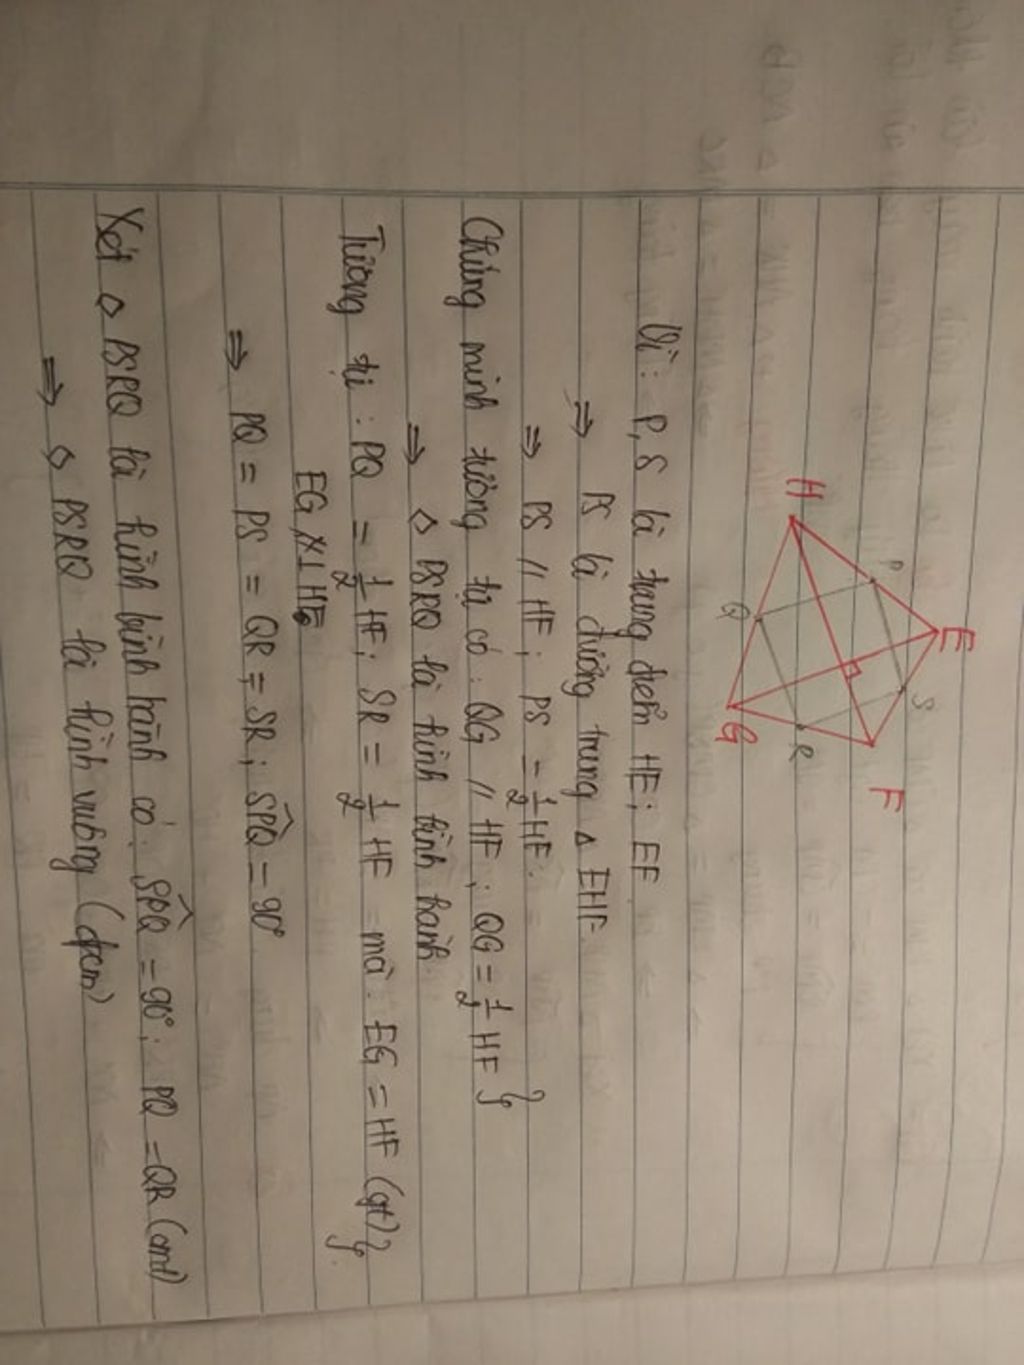 H
E
F
G
P
S
Q
R
Vì: P, S là trung điểm HE; EF
=> PS là đường trung △ EHF.
=> PS // HF; PS = 1/2 HF.
Chứng minh tương tự có: QG // HF; QG = 1/2 HF }
=> ◇ PSRQ là hình bình hành
Tương tự: PQ = 1/2 HF; SR = 1/2 HF mà: EG = HF (gt) }
EG ⊥ HF
=> PQ = PS = QR = SR; SPQ = 90°
Xét ◇ PSRQ là hình bình hành có: SPQ = 90°; PQ = QR (cmt)
=> ◇ PSRQ là hình vuông (đpcm)